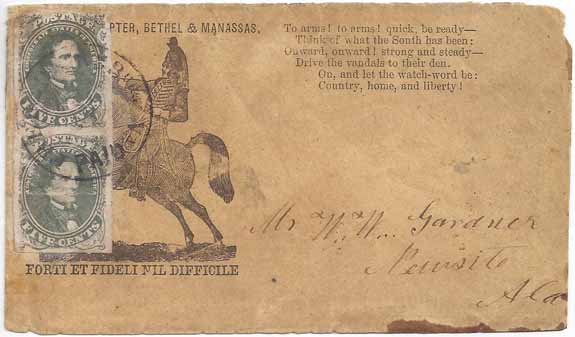 POSTAGE
FIVE CENTS
POSTAGE
FIVE CENTS
PTER, BETHEL & MANASSAS,
To arms! to arms! quick, be ready—
Think of what the South has been:
Onward, onward! strong and steady—
Drive the vandals to their den.
On, and let the watch-word be:
Country, home, and liberty!
FORTI ET FIDELI NIL DIFFICILE
Mr W. W. Gardner
Newsite
Ala